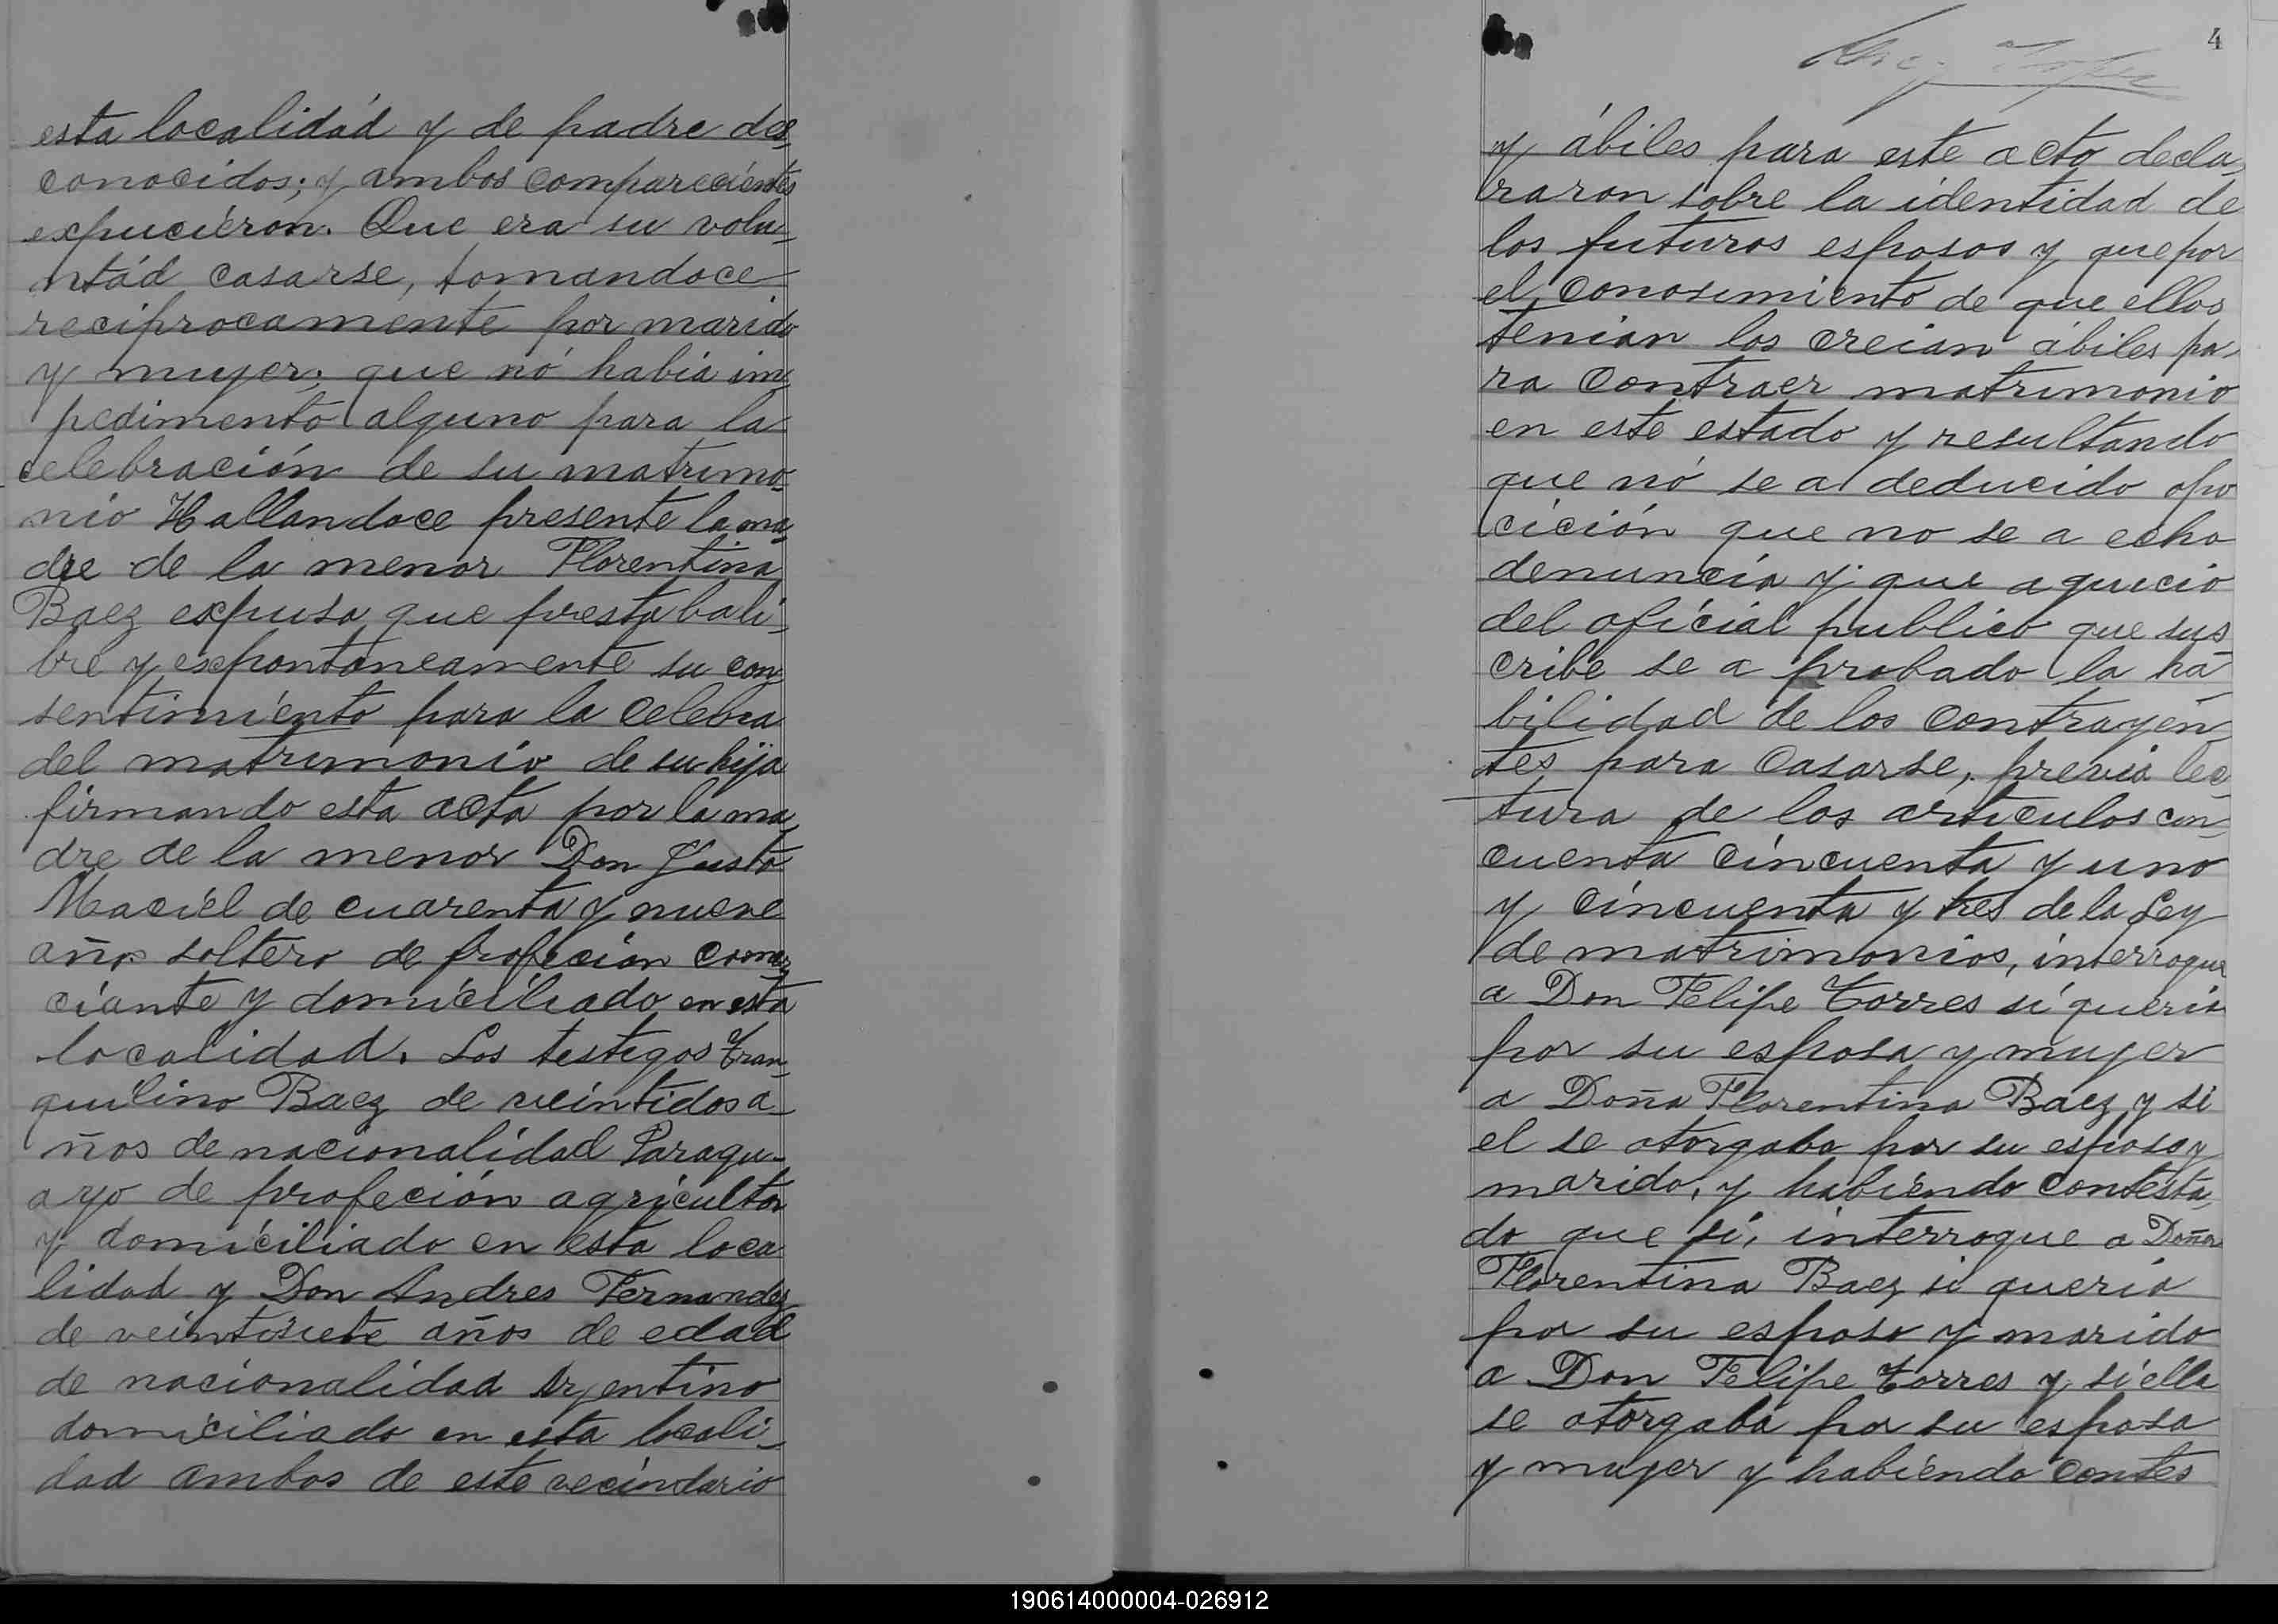 esta localidád y de padre des
conocidos; y ambos comparecientes
expuciéron. Que era su volu-
ntád casarse, tomandoce
reciprocamente por marido
y mujer; que nó había im
pedimento alguno para la
celebración de su matrimo-
nio Hallandoce presente la ma
dre de la menor Florentina
Baez expuso que prestaba li-
bre y expontaneamente su con
sentimiento para la celebra
del matrimonio de su hija
firmando esta acta por la ma
dre de la menor Don Justo
Maciél de cuarenta y nueve
años soltero de profecion comer
ciante y domiciliado en esta
localidad. Los testegos Tran-
quilino Baez de veintidos a-
ños de nacionalidad Paragu-
ayo de profeción agricultor
y domiciliado en esta loca
lidad y Don Andres Fernandez
de veintisiete años de edad
de nacionalidad Argentino
domiciliado en esta locali-
dad ambos de este vecindario
4
y ábiles para este acto decla-
raron sobre la identidad de
los futuros esposos y que por
el conosimiento de que ellos
tenian los creian ábiles pa-
ra contraer matrimonio
en este estado y resultando
que nó se a deducido opo
cición que no se a echo
denuncia y que a quicio
del oficial publico que sus
cribe se a probado la ha
bilidad de los contrayen
tes para casarse, previa lec
tura de los articulos cin-
cuenta cincuenta y uno
y cincuenta y tres de la Ley
de matrimonios, interrogue
a Don Felipe Torres si queria
por su esposa y mujer
a Doña Florentina Baez y si
el se otorgaba por su esposo y
marido, y habiendo contesta-
do que sí, interrogue a Doña
Florentina Baez si queria
por su esposo y marido
a Don Felipe Torres y si ella
se otorgaba por su esposa
y mujer y habiendo contes
190614000004-026912